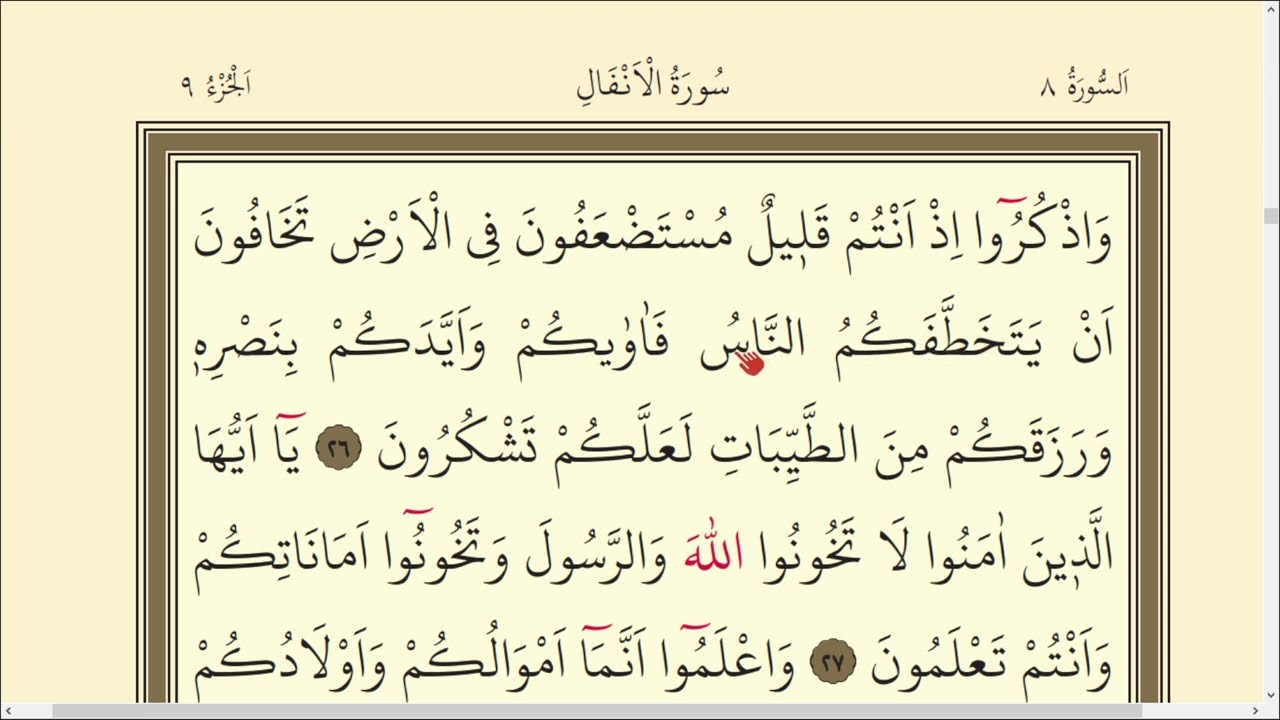 اَلسُّورَةُ ٨ سُورَةُ الْاَنْفَالِ اَلْجُزْءُ ٩
وَاذْكُرُٓوا اِذْ اَنْتُمْ قَلٖيلٌ مُسْتَضْعَفُونَ فِى الْاَرْضِ تَخَافُونَ
اَنْ يَتَخَطَّفَكُمُ النَّاسُ فَاٰوٰيكُمْ وَاَيَّدَكُمْ بِنَصْرِهٖ
وَرَزَقَكُمْ مِنَ الطَّيِّبَاتِ لَعَلَّكُمْ تَشْكُرُونَ ٢٦ يَٓا اَيُّهَا
الَّذٖينَ اٰمَنُوا لَا تَخُونُوا اللّٰهَ وَالرَّسُولَ وَتَخُونُٓوا اَمَانَاتِكُمْ
وَاَنْتُمْ تَعْلَمُونَ ٢٧ وَاعْلَمُٓوا اَنَّمَٓا اَمْوَالُكُمْ وَاَوْلَادُكُمْ